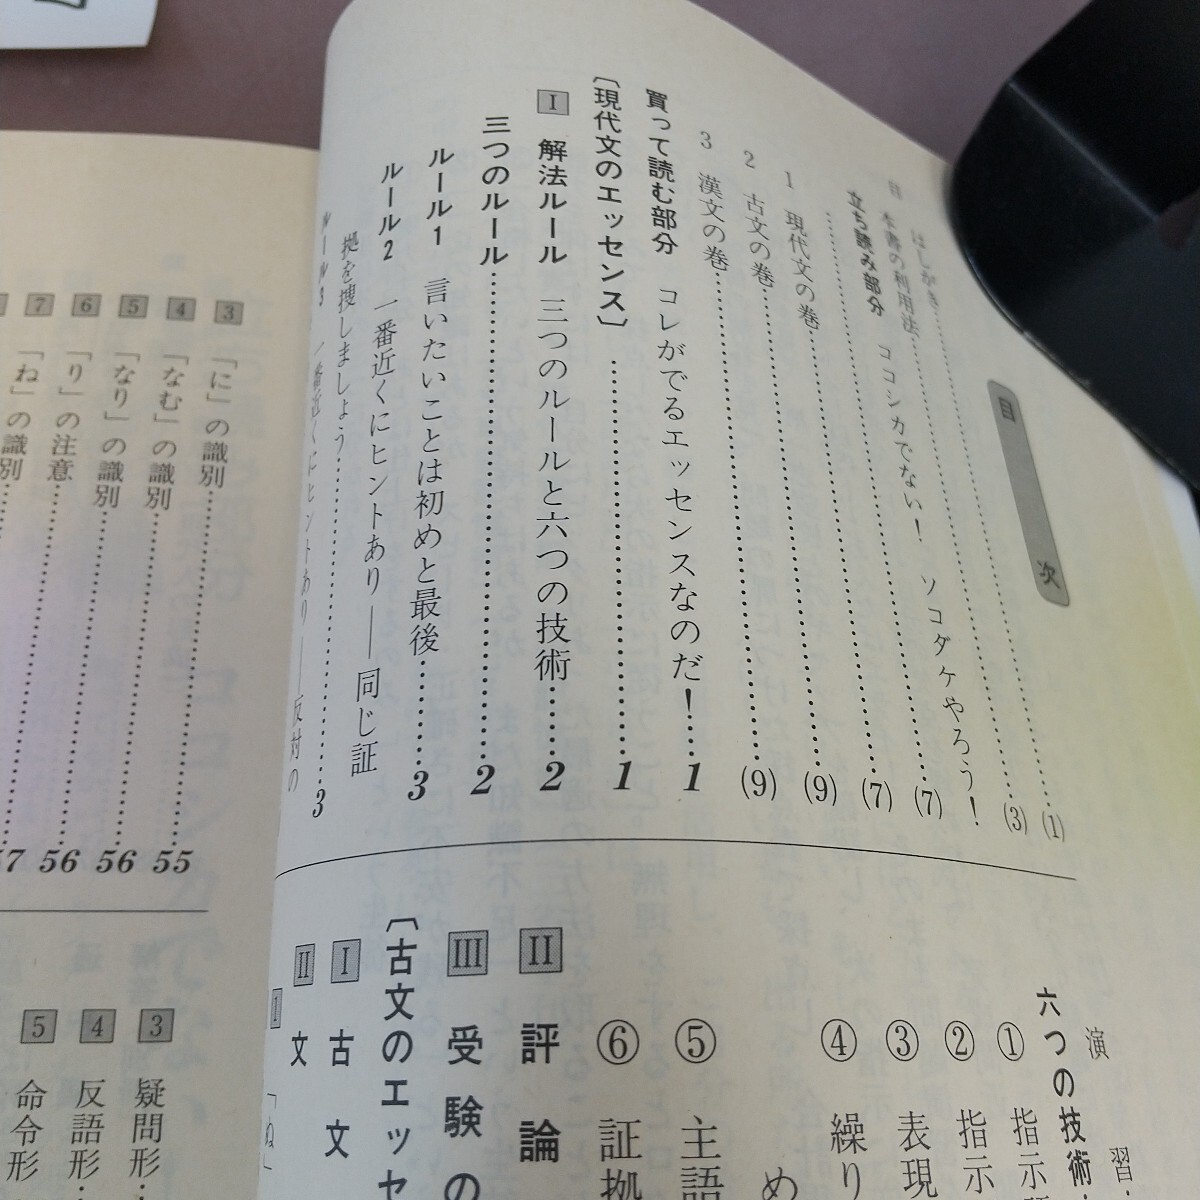 目次
はしがき……(1)
目 本書の利用法……(3)
立ち読み部分 ココシカでない！ ソコダケやろう！
……(7)
1 現代文の巻……(7)
2 古文の巻……(9)
3 漢文の巻……(9)
買って読む部分 コレがでるエッセンスなのだ！……1
〔現代文のエッセンス〕……1
I 解法ルール 三つのルールと六つの技術……2
三つのルール……2
ルール1 言いたいことは初めと最後……3
ルール2 一番近くにヒントあり――同じ証
拠を捜しましょう……3
ルール3 一番近くにヒントあり――反対の
演習
六つの技術
① 指示
② 指示
③ 表現
④ 繰り
め
⑤ 主語
⑥ 証拠
II 評論
III 受験の
〔古文のエッセ
I 古文
II 文
1 「ぬ」
3 「に」の識別……55
4 「なむ」の識別……56
5 「なり」の識別……56
6 「り」の注意
7 「ね」の識別
3 疑問形
4 反語形
5 命令形